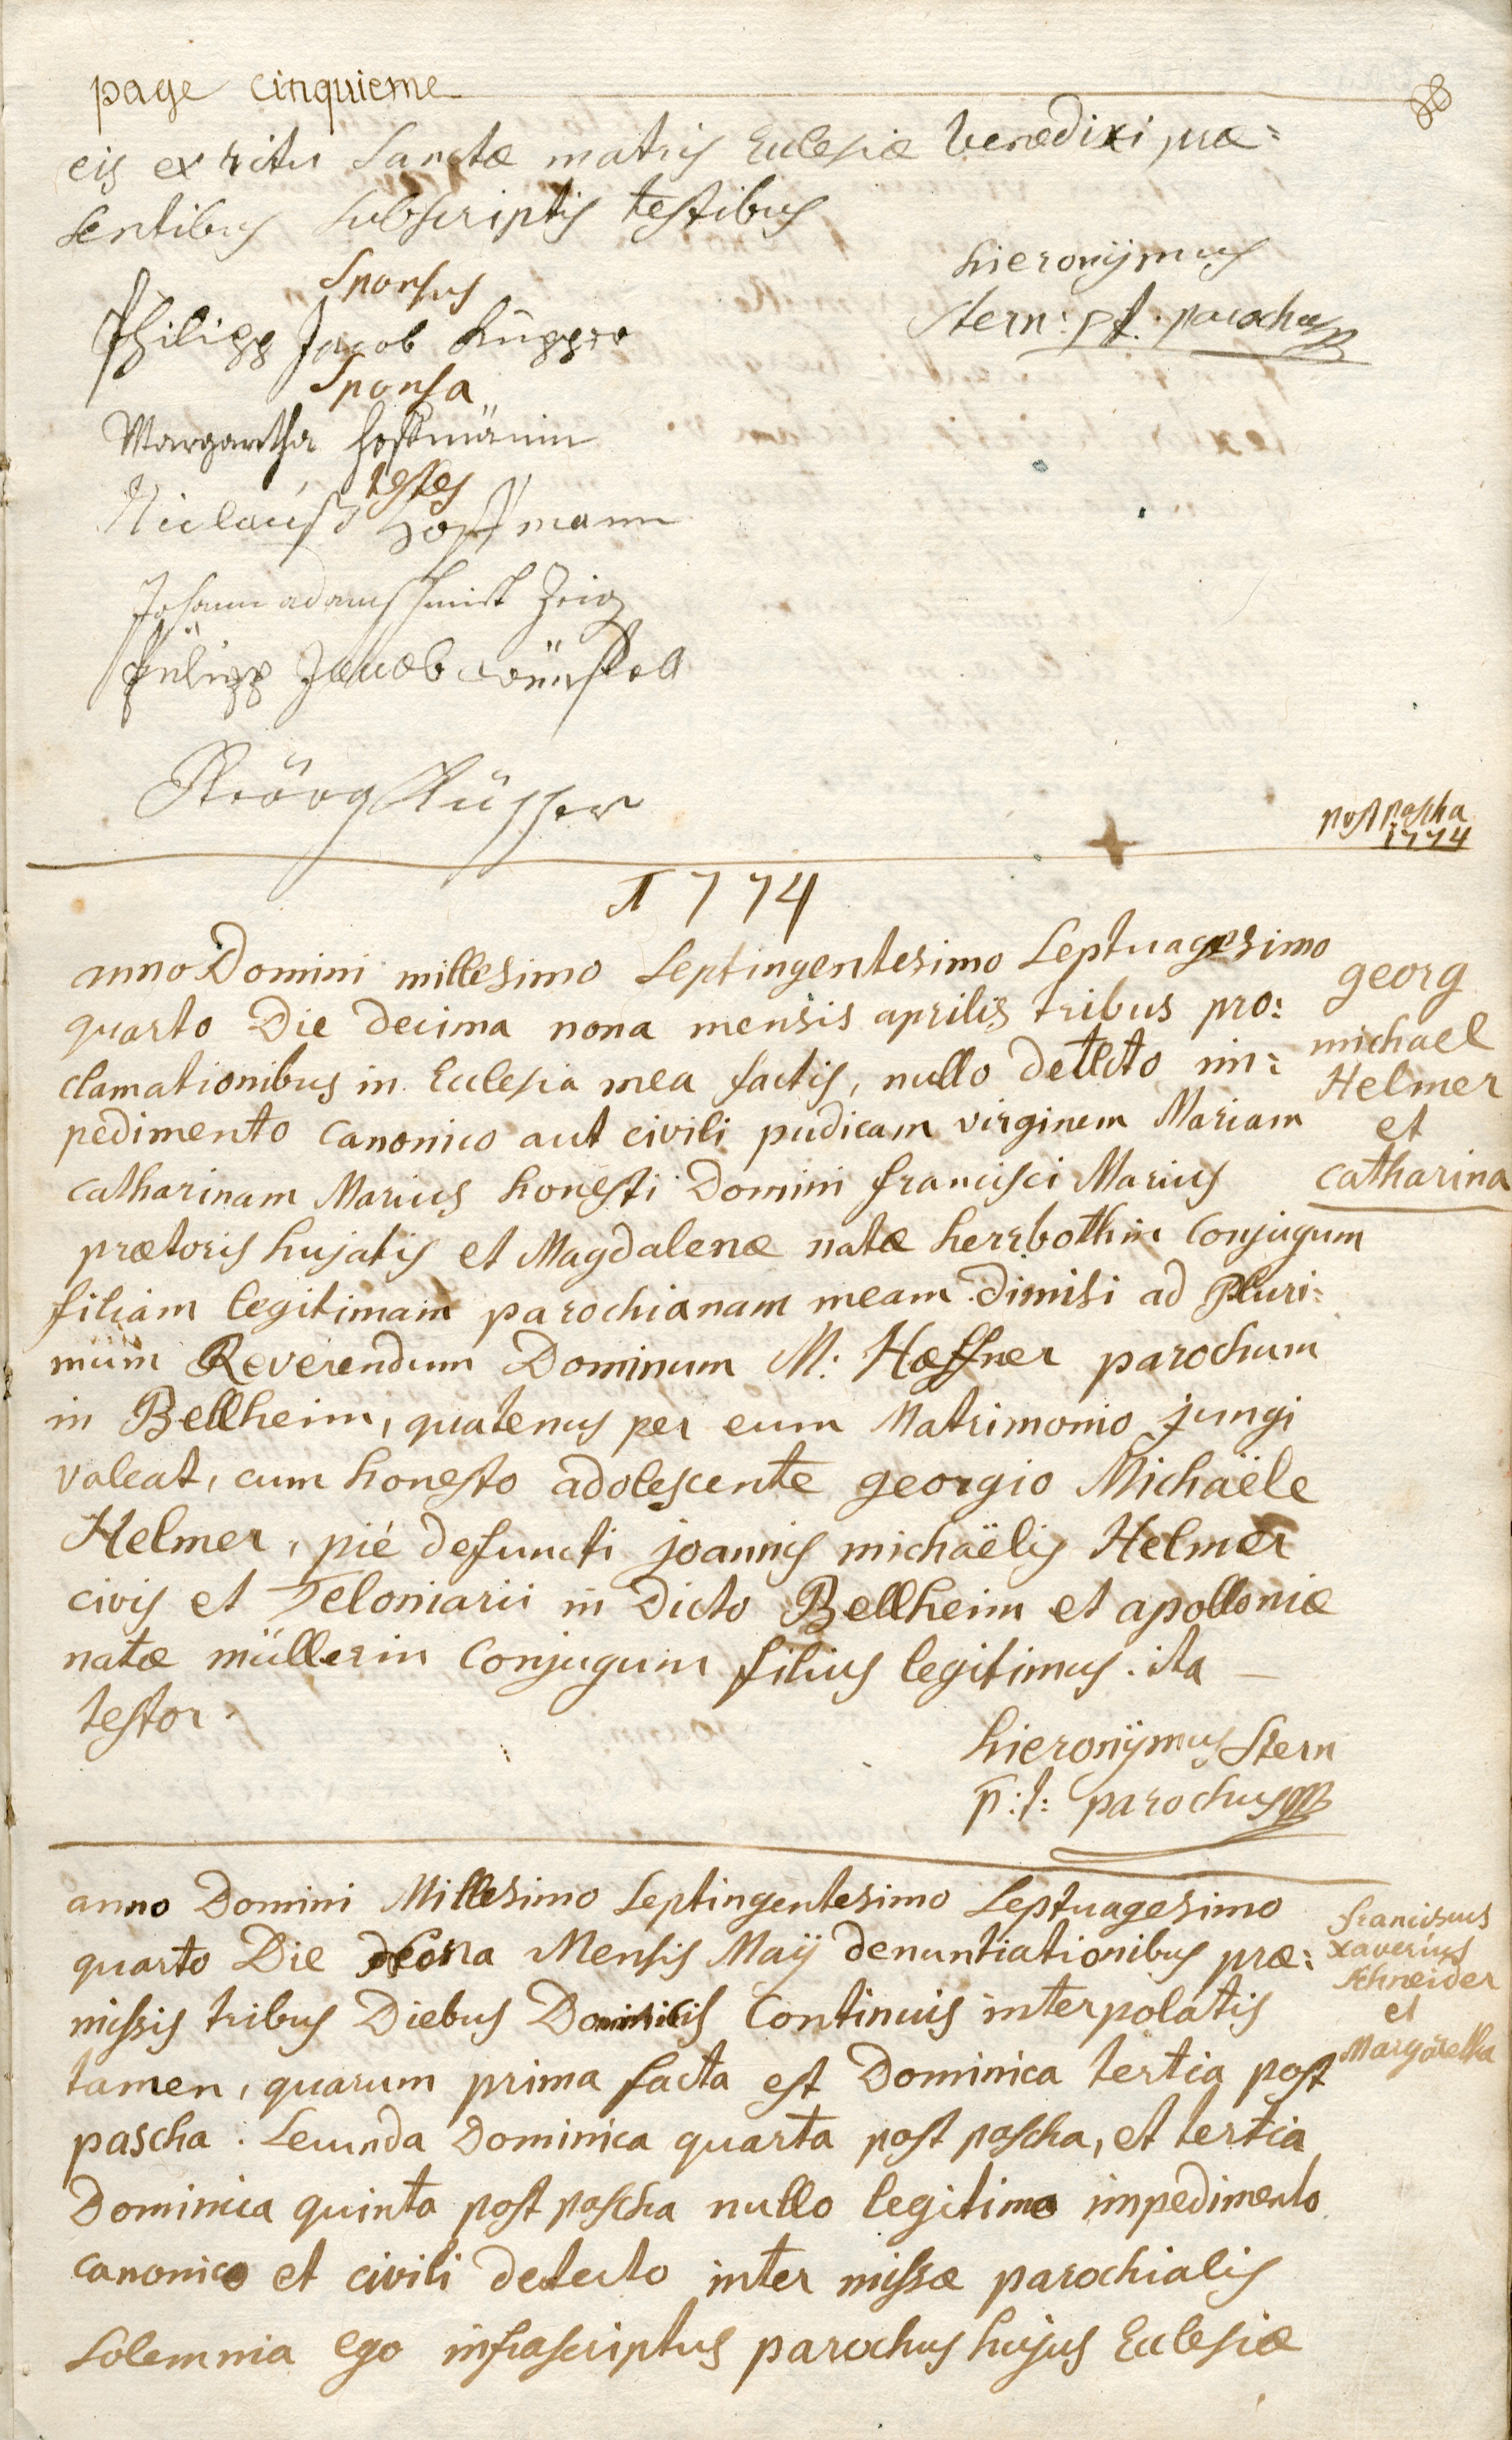 page cinquieme
eis ex ritu Sanctæ matris Ecclesiæ benedixi præ=
sentibus subscriptis testibus
hieronÿmus
Stern: p.t. parochus
Sponsus
Philipp Jacob
Sponsa
Margaretha Hoffmänin
testes
Niclauß Hoffmann
Johann adam schmit Zeig
Philipp Jacob
post pascha
1774
1774
anno Domini millesimo Septingentesimo Septuagesimo
quarto Die decima nona mensis aprilis tribus pro=
clamationibus in Ecclesia mea factis, nullo detecto im=
pedimento canonico aut civili pudicam virginem Mariam
catharinam Marius honesti Domini francisci Marius
prætoris hujatis et Magdalenæ natæ herrbothin Conjugum
filiam legitimam parochianam meam dimisi ad Pluri=
mum Reverendum Dominum M: Hæffner parochum
in Bellheim, quatenus per eum Matrimonio jungi
valeat, cum honesto adolescente georgio Michaële
Helmer, pié defuncti joannis michaëlis Helmer
civis et Teloniarii in dicto Bellheim et apolloniæ
natæ müllerin Conjugum filius legitimus. ita
testor.
georg
michael
Helmer
et
catharina
hieronÿmus Stern
p:t: parochus
anno Domini Millesimo Septingentesimo Septuagesimo
quarto Die Nona Mensis Maÿ denuntiationibus præ=
missis tribus Diebus Dominicis Continuis interpolatis
tamen, quarum prima facta est Dominica tertia post
pascha. Secunda Dominica quarta post pascha, et tertia
Dominica quinta post pascha nullo legitimo impedimento
canonico et civili detecto inter missæ parochialis
Solemnia ego infrascriptus parochus hujus Ecclesiæ
franciscus
xaverius
Schneider
et
Margaretha